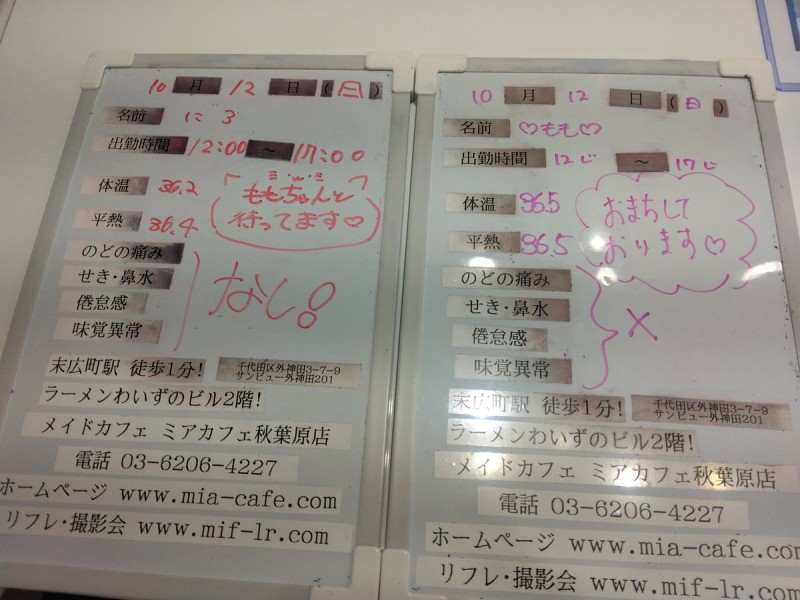 10 月 12 日 (日)
名前 にろ
出勤時間 12:00 ~ 17:00
体温 36.2
平熱 36.4
ももちゃんと
待ってます♡
のどの痛み
せき・鼻水
倦怠感
味覚異常
なし!
末広町駅 徒歩1分!
千代田区外神田3-7-9
サンビュー外神田201
ラーメンわいずのビル2階!
メイドカフェ ミアカフェ秋葉原店
電話 03-6206-4227
ホームページ www.mia-cafe.com
リフレ・撮影会 www.mif-lr.com
10 月 12 日 (日)
名前 ♡もも♡
出勤時間 12じ ~ 17じ
体温 36.5
平熱 36.5
おまちして
おります♡
のどの痛み
せき・鼻水
倦怠感
味覚異常
×
末広町駅 徒歩1分!
千代田区外神田3-7-9
サンビュー外神田201
ラーメンわいずのビル2階!
メイドカフェ ミアカフェ秋葉原店
電話 03-6206-4227
ホームページ www.mia-cafe.com
リフレ・撮影会 www.mif-lr.com